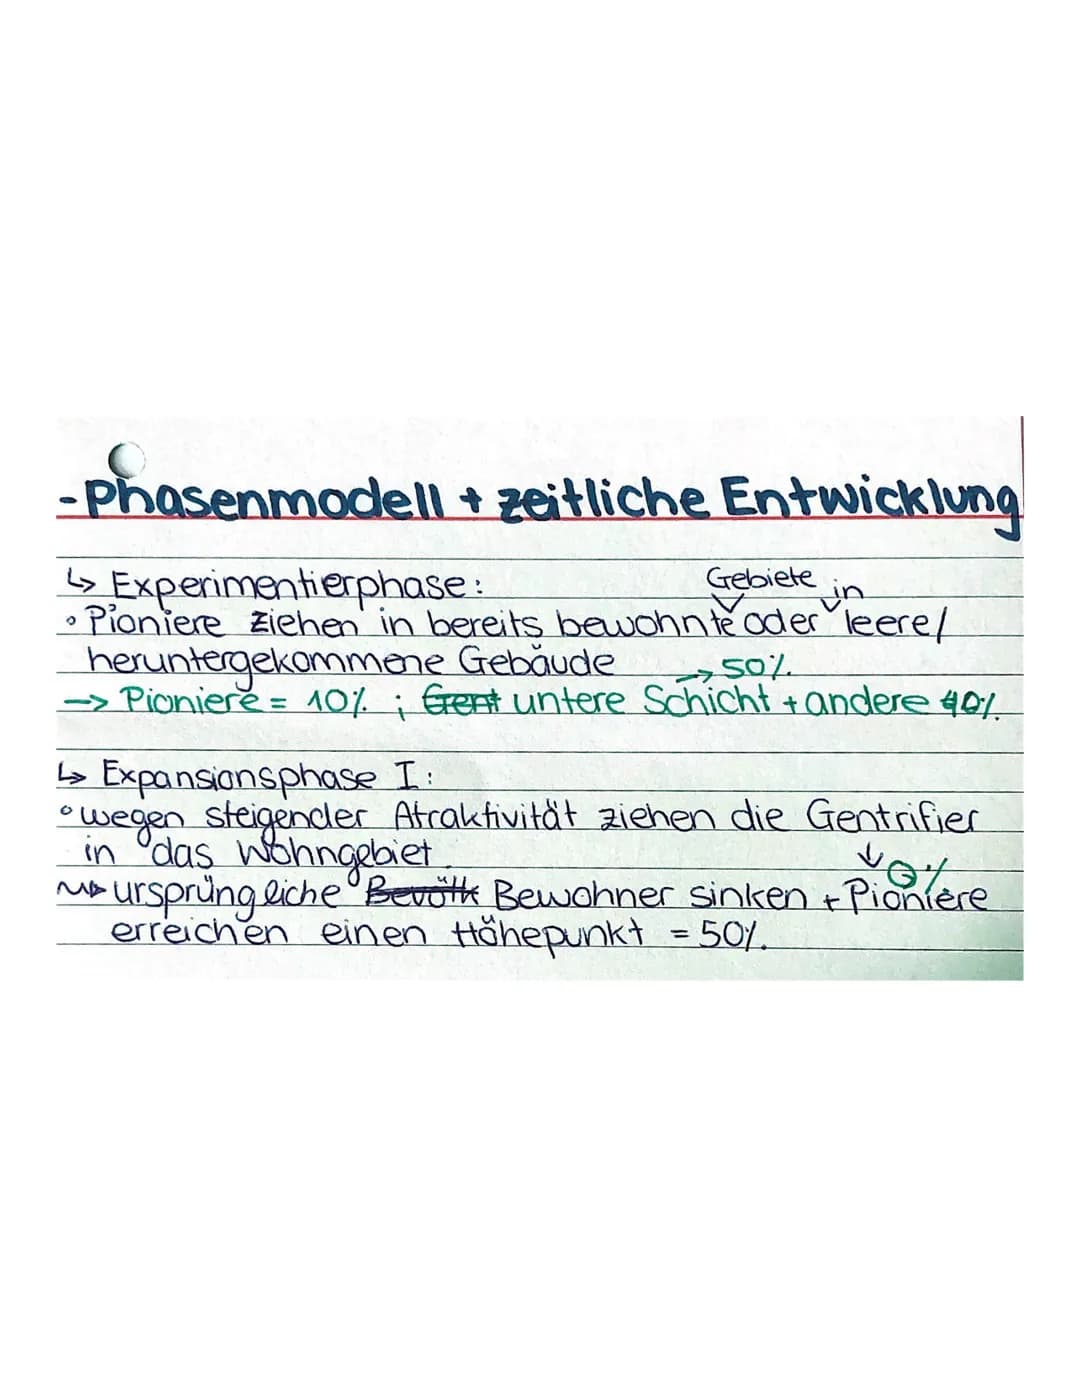 -Phasenmodell + zeitliche Entwicklung
↳ Experimentierphase:
Gebiete in
• Pioniere ziehen in bereits bewohnte oder leere/
heruntergekommene Gebäude
→ 50%.
→ Pioniere = 10% ; Gent untere Schicht + andere 40%.
↳ Expansionsphase I:
• wegen steigender Atraktivität ziehen die Gentrifier
in das Wohngebiet
↓ %
ursprüngliche Bevölk Bewohner sinken + Pioniere
erreichen einen Höhepunkt = 50%.